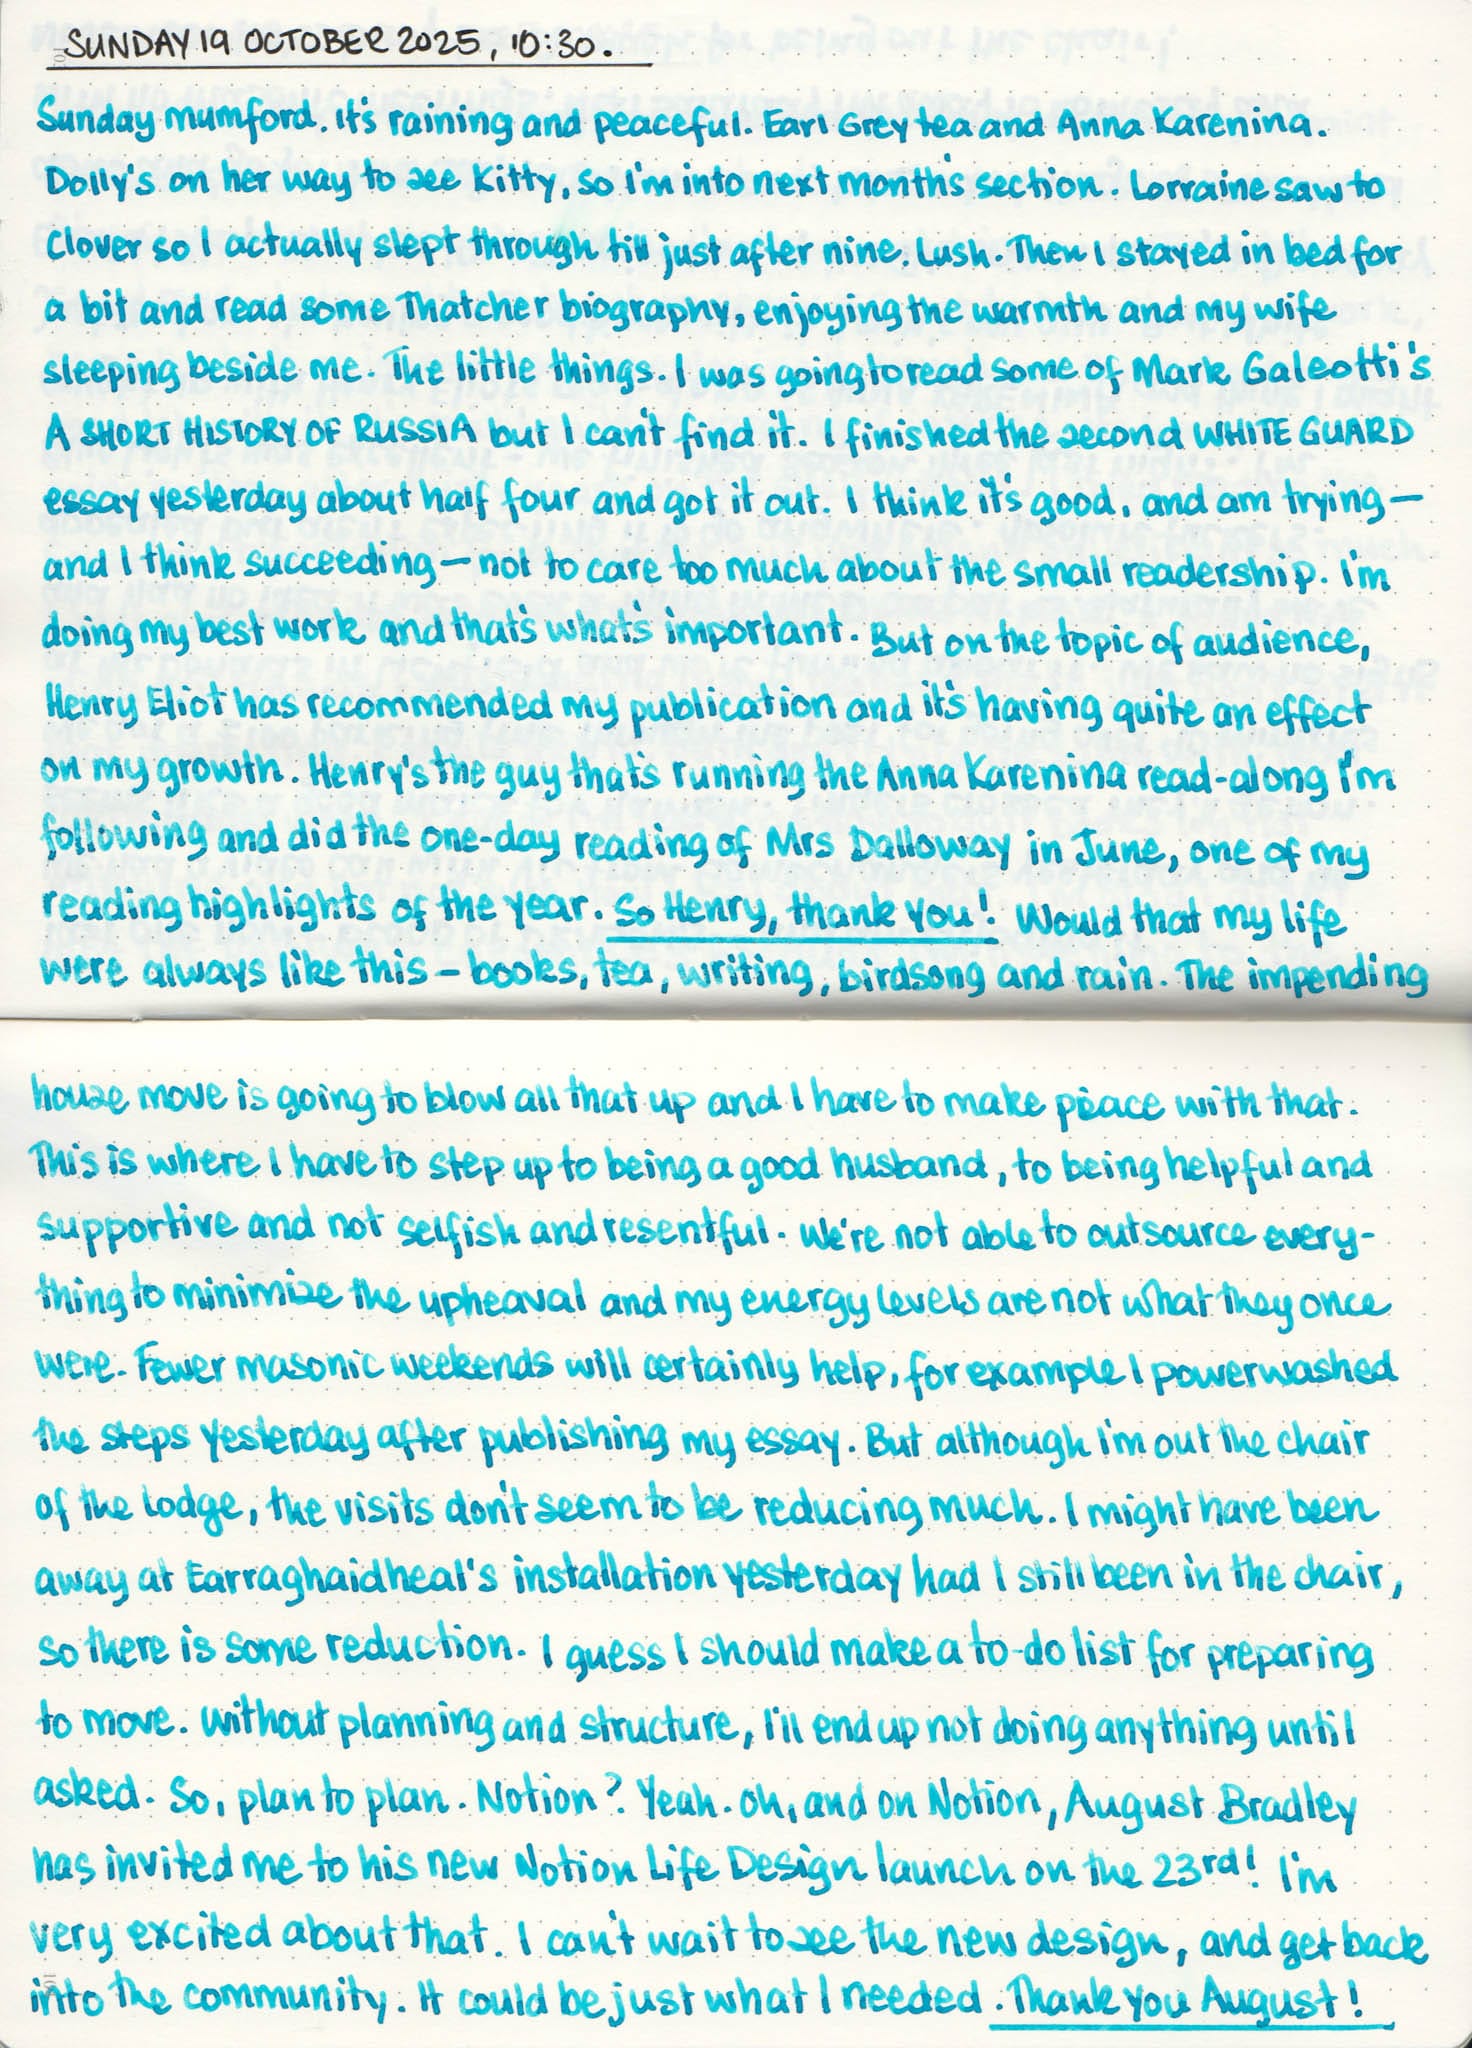 SUNDAY 19 OCTOBER 2025, 10:30.
Sunday mumford. It's raining and peaceful. Earl Grey tea and Anna Karenina.
Dolly's on her way to see Kitty, so I'm into next month's section. Lorraine saw to
Clover so I actually slept through till just after nine. Lush. Then I stayed in bed for
a bit and read some Thatcher biography, enjoying the warmth and my wife
sleeping beside me. The little things. I was going to read some of Mark Galeotti's
A SHORT HISTORY OF RUSSIA but I can't find it. I finished the second WHITE GUARD
essay yesterday about half four and got it out. I think it's good, and am trying —
and I think succeeding — not to care too much about the small readership. I'm
doing my best work and that's what's important. But on the topic of audience,
Henry Eliot has recommended my publication and it's having quite an effect
on my growth. Henry's the guy that's running the Anna Karenina read-along I'm
following and did the one-day reading of Mrs Dalloway in June, one of my
reading highlights of the year. So Henry, thank you! Would that my life
were always like this – books, tea, writing, birdsong and rain. The impending
house move is going to blow all that up and I have to make peace with that.
This is where I have to step up to being a good husband, to being helpful and
supportive and not selfish and resentful. We're not able to outsource every-
thing to minimize the upheaval and my energy levels are not what they once
were. Fewer masonic weekends will certainly help, for example I powerwashed
the steps yesterday after publishing my essay. But although I'm out the chair
of the lodge, the visits don't seem to be reducing much. I might have been
away at Earraghaidheal's installation yesterday had I still been in the chair,
so there is some reduction. I guess I should make a to-do list for preparing
to move. Without planning and structure, I'll end up not doing anything until
asked. So, plan to plan. Notion? Yeah. Oh, and on Notion, August Bradley
has invited me to his new Notion Life Design launch on the 23rd! I'm
very excited about that. I can't wait to see the new design, and get back
into the community. It could be just what I needed. Thank you August!